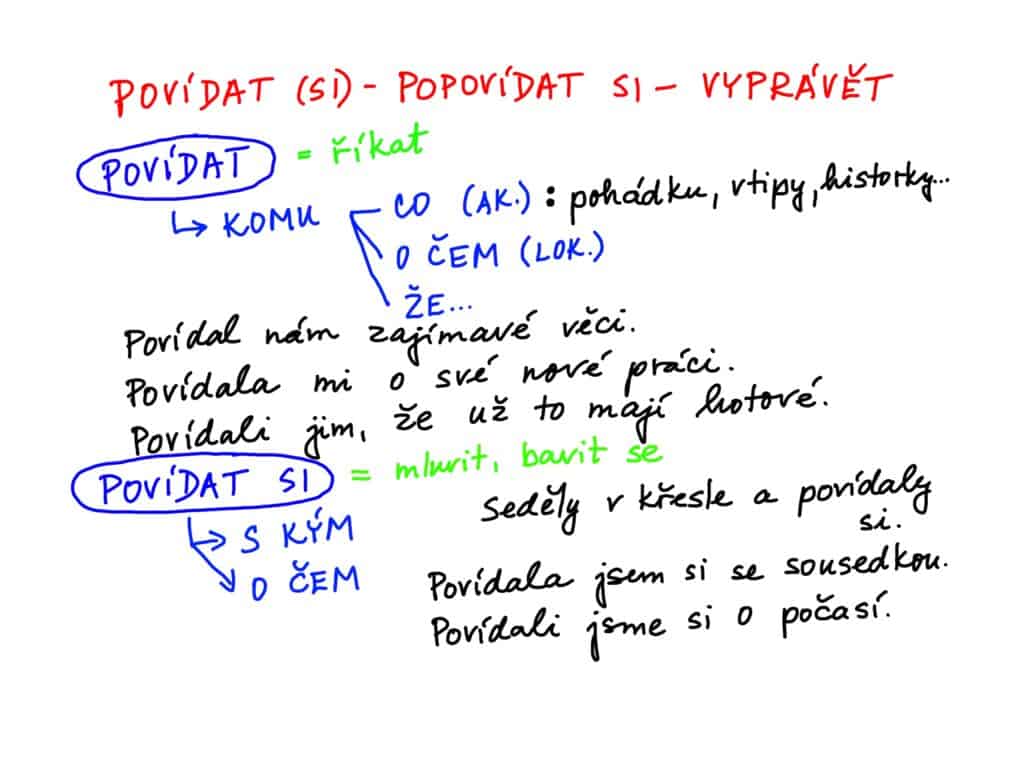 POVÍDAT (SI) - POPOVÍDAT SI - VYPRÁVĚT
POVÍDAT = říkat
↳ KOMU CO (AK.) : pohádku, vtipy, historky...
O ČEM (LOK.)
ŽE...
Povídal nám zajímavé věci.
Povídala mi o své nové práci.
Povídali jim, že už to mají hotové.
POVÍDAT SI = mluvit, bavit se
Seděly v křesle a povídaly
si.
S KÝM
O ČEM
Povídala jsem si se sousedkou.
Povídali jsme si o počasí.